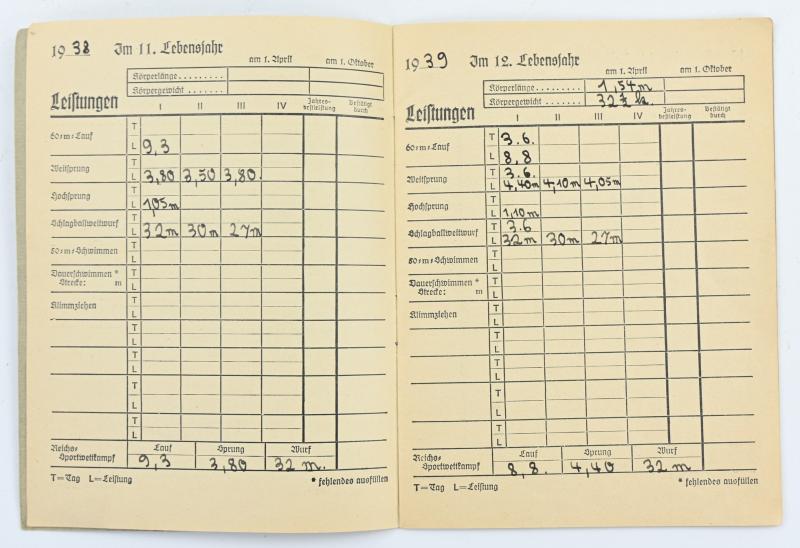 1938 Im 11. Lebensjahr
am 1. April am 1. Oktober
Körperlänge
Körpergewicht
Leistungen I II III IV Jahres-bestleistung Bestätigt durch
60-m-Lauf T
L 9,3
Weitsprung T
L 3,80 3,50 3,80.
Hochsprung T
L 1,05m
Schlagballweitwurf T
L 32m 30m 27m
50-m-Schwimmen T
L
Dauerschwimmen * T
Strecke: m L
Klimmziehen T
L
T
L
T
L
T
L
T
L
Reichs-Sportwettkampf Lauf Sprung Wurf
9,3 3,80 32 m.
T=Tag L=Leistung * fehlendes ausfüllen
1939 Im 12. Lebensjahr
am 1. April am 1. Oktober
Körperlänge 1,54m
Körpergewicht 32½ k.
Leistungen I II III IV Jahres-bestleistung Bestätigt durch
60-m-Lauf T 3.6.
L 8,8
Weitsprung T 3.6.
L 4,40m 4,10m 4,05m
Hochsprung T
L 1,10m
Schlagballweitwurf T 3.6
L 32m 30m 27m
50-m-Schwimmen T
L
Dauerschwimmen * T
Strecke: m L
Klimmziehen T
L
T
L
T
L
T
L
T
L
Reichs-Sportwettkampf Lauf Sprung Wurf
8,8. 4,40 32 m
T=Tag L=Leistung * fehlendes ausfüllen